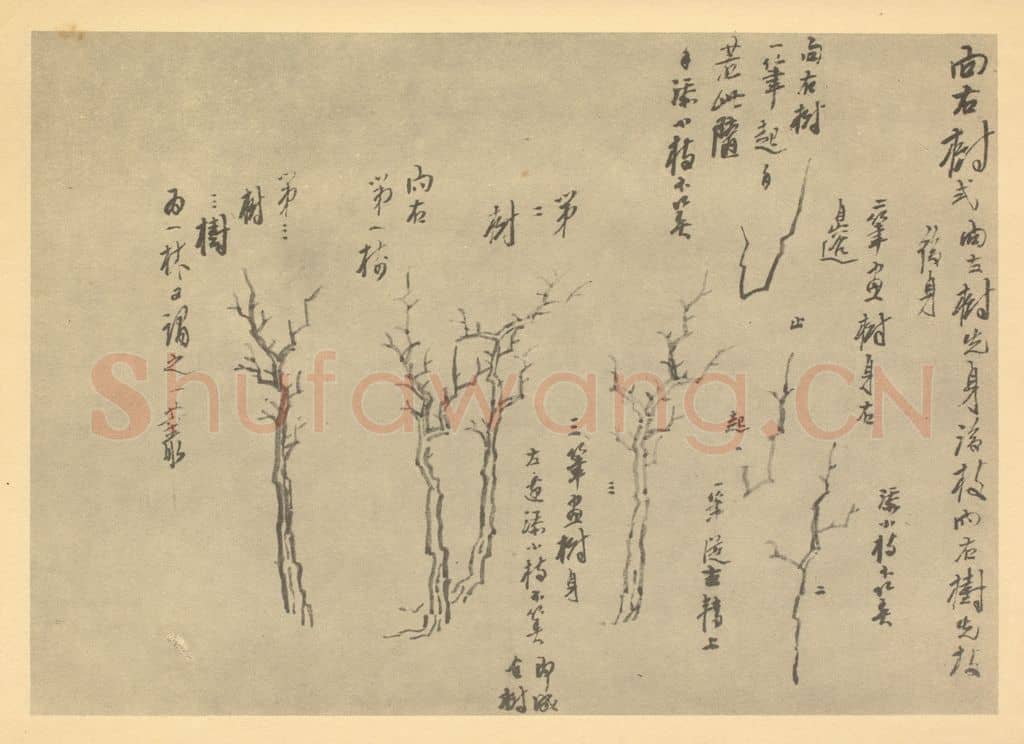 向右樹式向左樹先身後枝向右樹先枝
後身
二筆畫樹身右
邊
添小枝不算
向右樹
一筆起自
添小枝不算
止
起
一筆從左轉上
二
三
三筆畫樹身
左邊添小枝不算
即成
右樹
第
二
樹
向右
第一樹
第三
樹
三樹
為一林又謂之一叢
Shufawang.CN